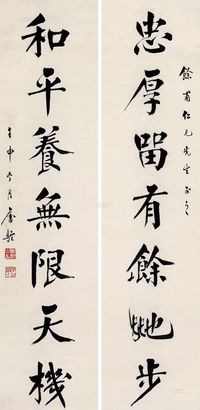 餘甫仁兄先生正之
忠厚留有餘地步
和平養無限天機
壬申月唐駝